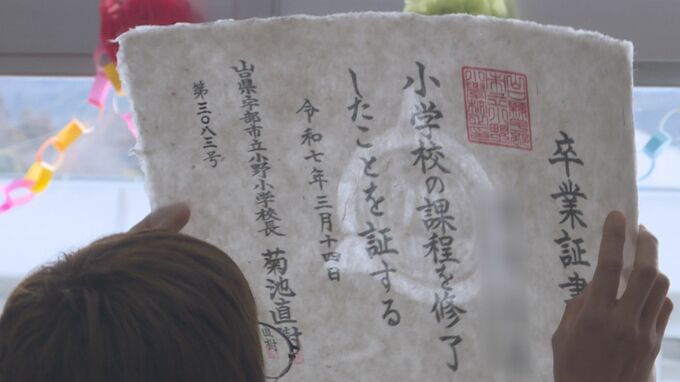 卒業証書
小学校の課程を修了
したことを証する
令和七年三月十四日
山口県宇部市立小野小学校長
菊池直樹
第三〇八三号